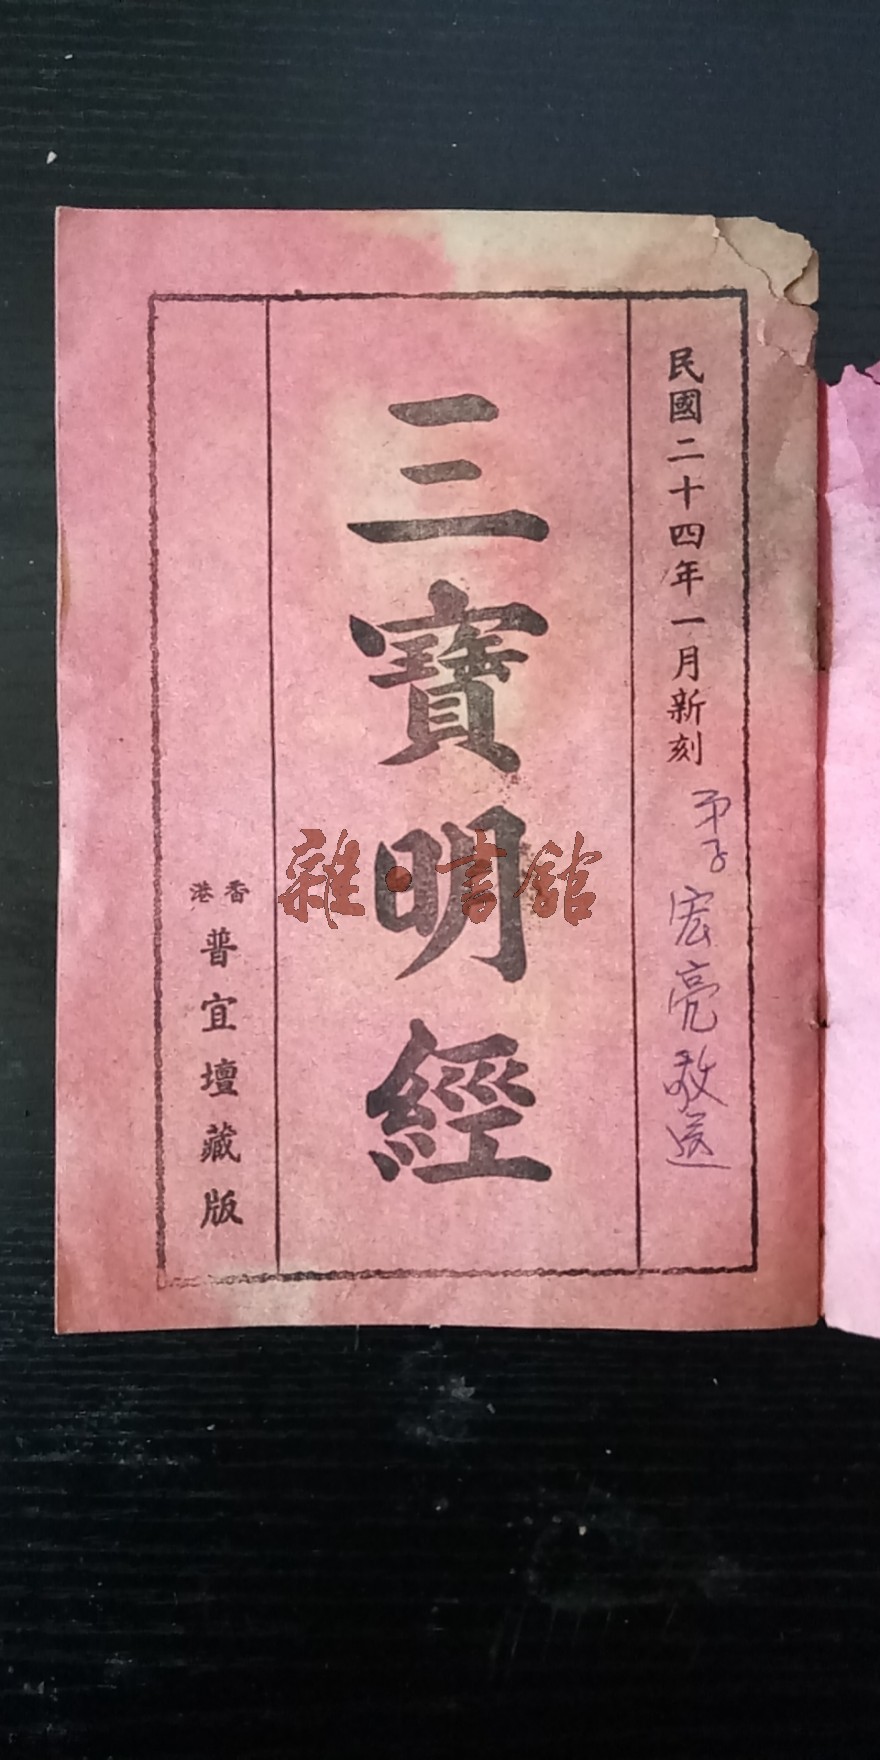 民國二十四年一月新刻
弟子宏亮敬送
三寶明經
香港
普宜壇藏版
雜·書舘